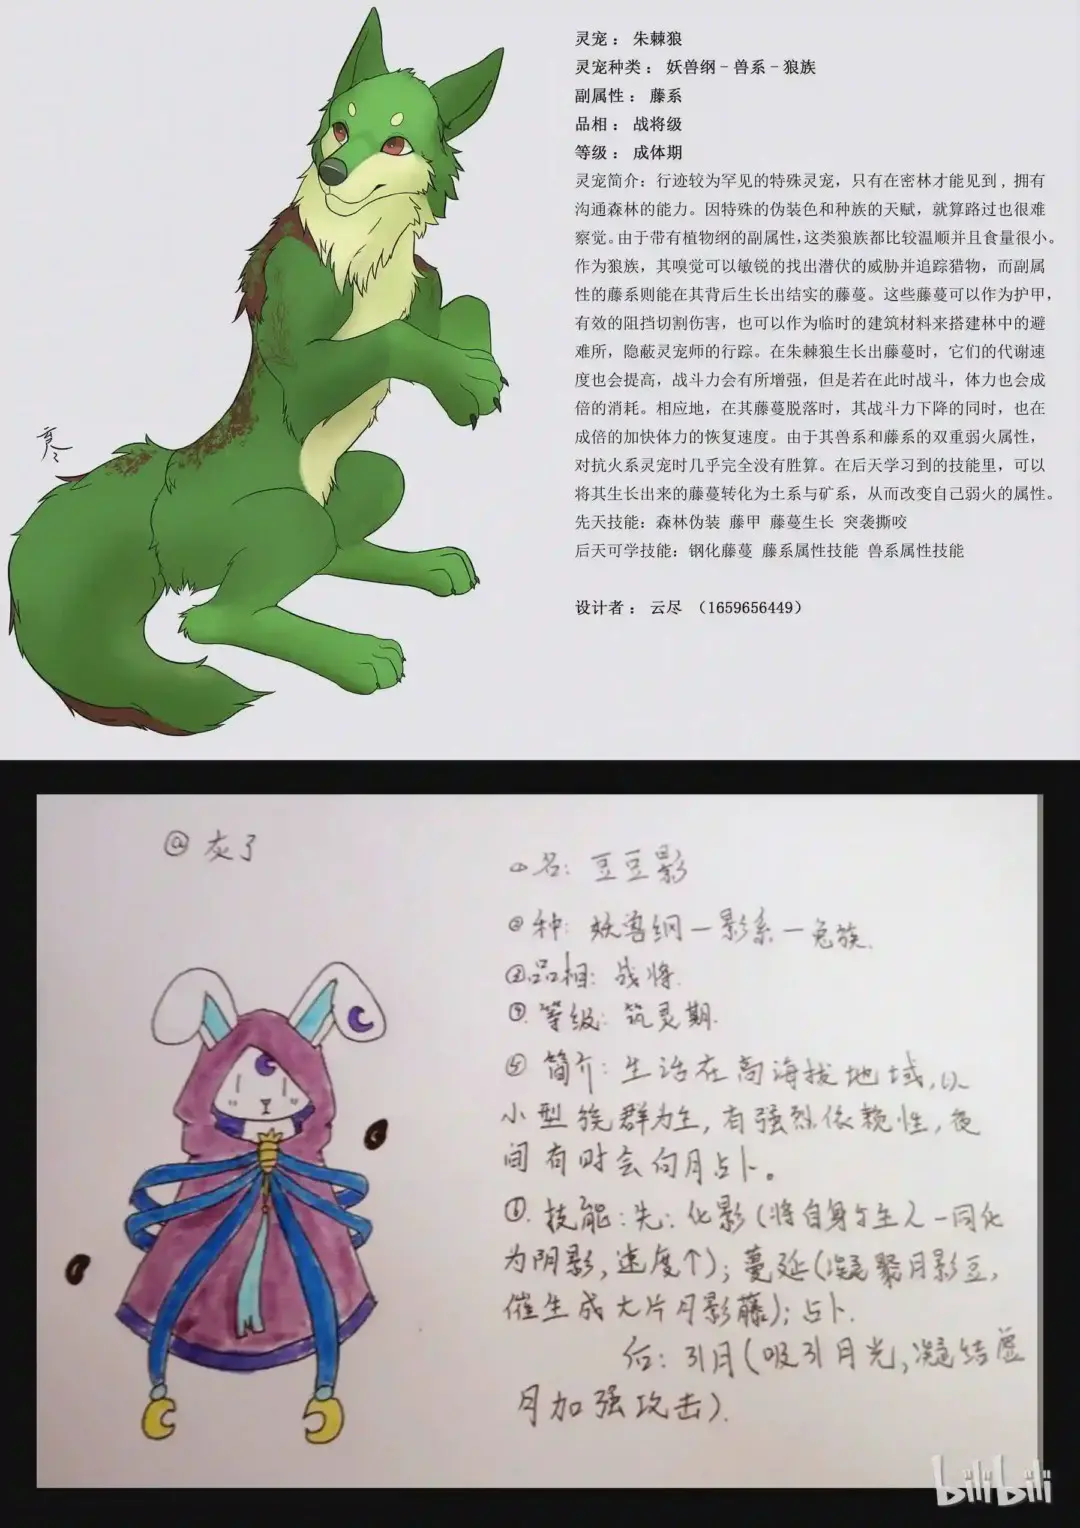 灵宠： 朱棘狼
灵宠种类： 妖兽纲－兽系－狼族
副属性： 藤系
品相： 战将级
等级： 成体期
灵宠简介：行迹较为罕见的特殊灵宠，只有在密林才能见到，拥有
沟通森林的能力。因特殊的伪装色和种族的天赋，就算路过也很难
察觉。由于带有植物纲的副属性，这类狼族都比较温顺并且食量很小。
作为狼族，其嗅觉可以敏锐的找出潜伏的威胁并追踪猎物，而副属
性的藤系则能在其背后生长出结实的藤蔓。这些藤蔓可以作为护甲，
有效的阻挡切割伤害，也可以作为临时的建筑材料来搭建林中的避
难所，隐蔽灵宠师的行踪。在朱棘狼生长出藤蔓时，它们的代谢速
度也会提高，战斗力会有所增强，但是若在此时战斗，体力也会成
倍的消耗。相应地，在其藤蔓脱落时，其战斗力下降的同时，也在
成倍的加快体力的恢复速度。由于其兽系和藤系的双重弱火属性，
对抗火系灵宠时几乎完全没有胜算。在后天学习到的技能里，可以
将其生长出来的藤蔓转化为土系与矿系，从而改变自己弱火的属性。
先天技能：森林伪装 藤甲 藤蔓生长 突袭撕咬
后天可学技能：钢化藤蔓 藤系属性技能 兽系属性技能
设计者： 云尽 （1659656449）
@ 灰了
名：豆豆影
②种：妖兽纲－影系－兔族.
品相：战将.
等级：筑灵期.
简介：生活在高海拔地域，以
小型族群为主，有强烈依赖性，夜
间有时会向月占卜。
技能：先：化影（将自身与主人一同化
为阴影，速度个）；蔓延（凝聚月影豆，
催生成大片月影藤）；占卜.
后：引月（吸引月光，凝结虚
月加强攻击）.
bilibili